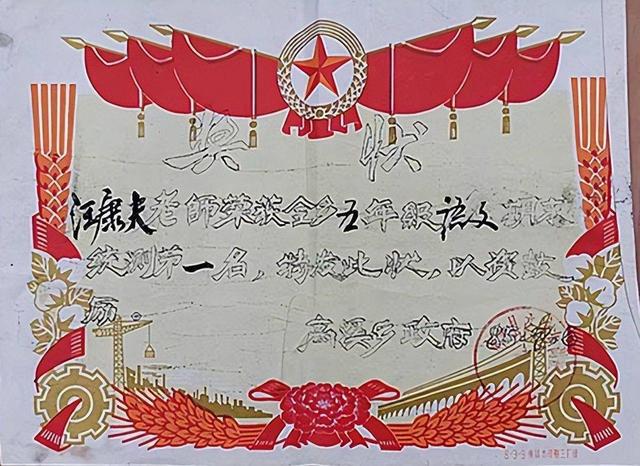 奖状
汪康夫老师荣获全乡五年级语文期末
统测第一名，特发此状，以资鼓
励。
高溪乡政府